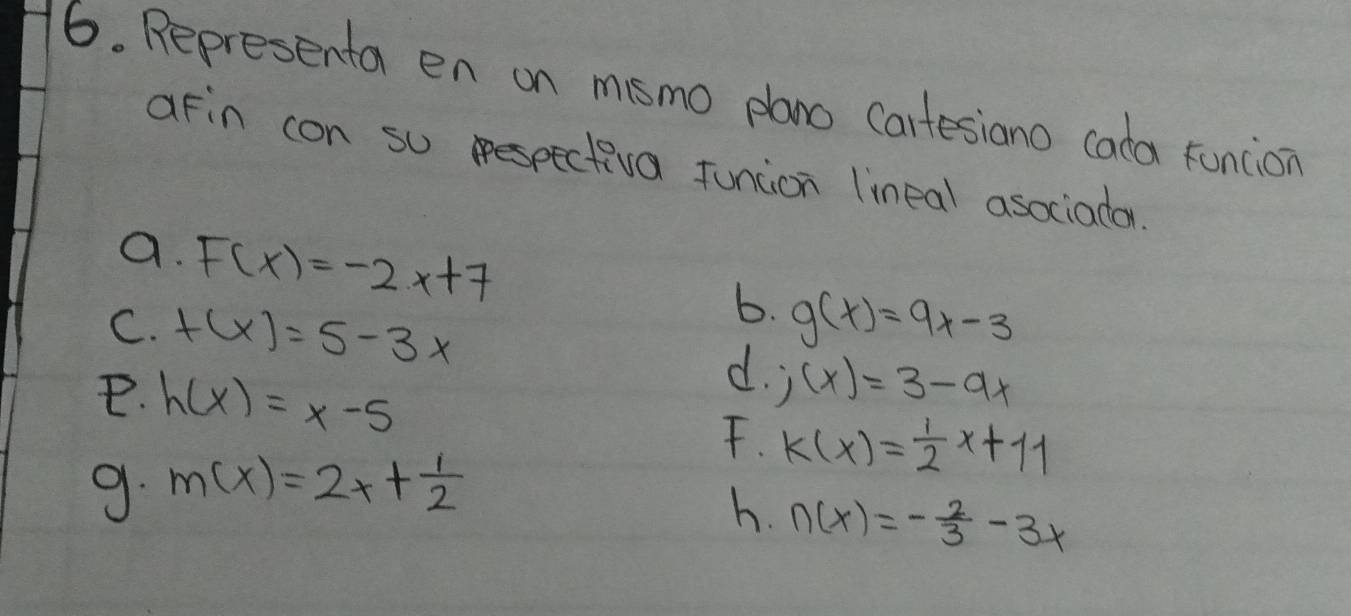 6. Representa en un mismo plano cartesiano cada función
afin con su respectiva función lineal asociada.
a. F(x)=-2x+7
b. g(x)=9x-3
c. t(x)=5-3x
d. j(x)=3-9x
e. h(x)=x-5
F. k(x)=\frac{1}{2}x+11
g. m(x)=2x+\frac{1}{2}
h. n(x)=-\frac{2}{3}-3x